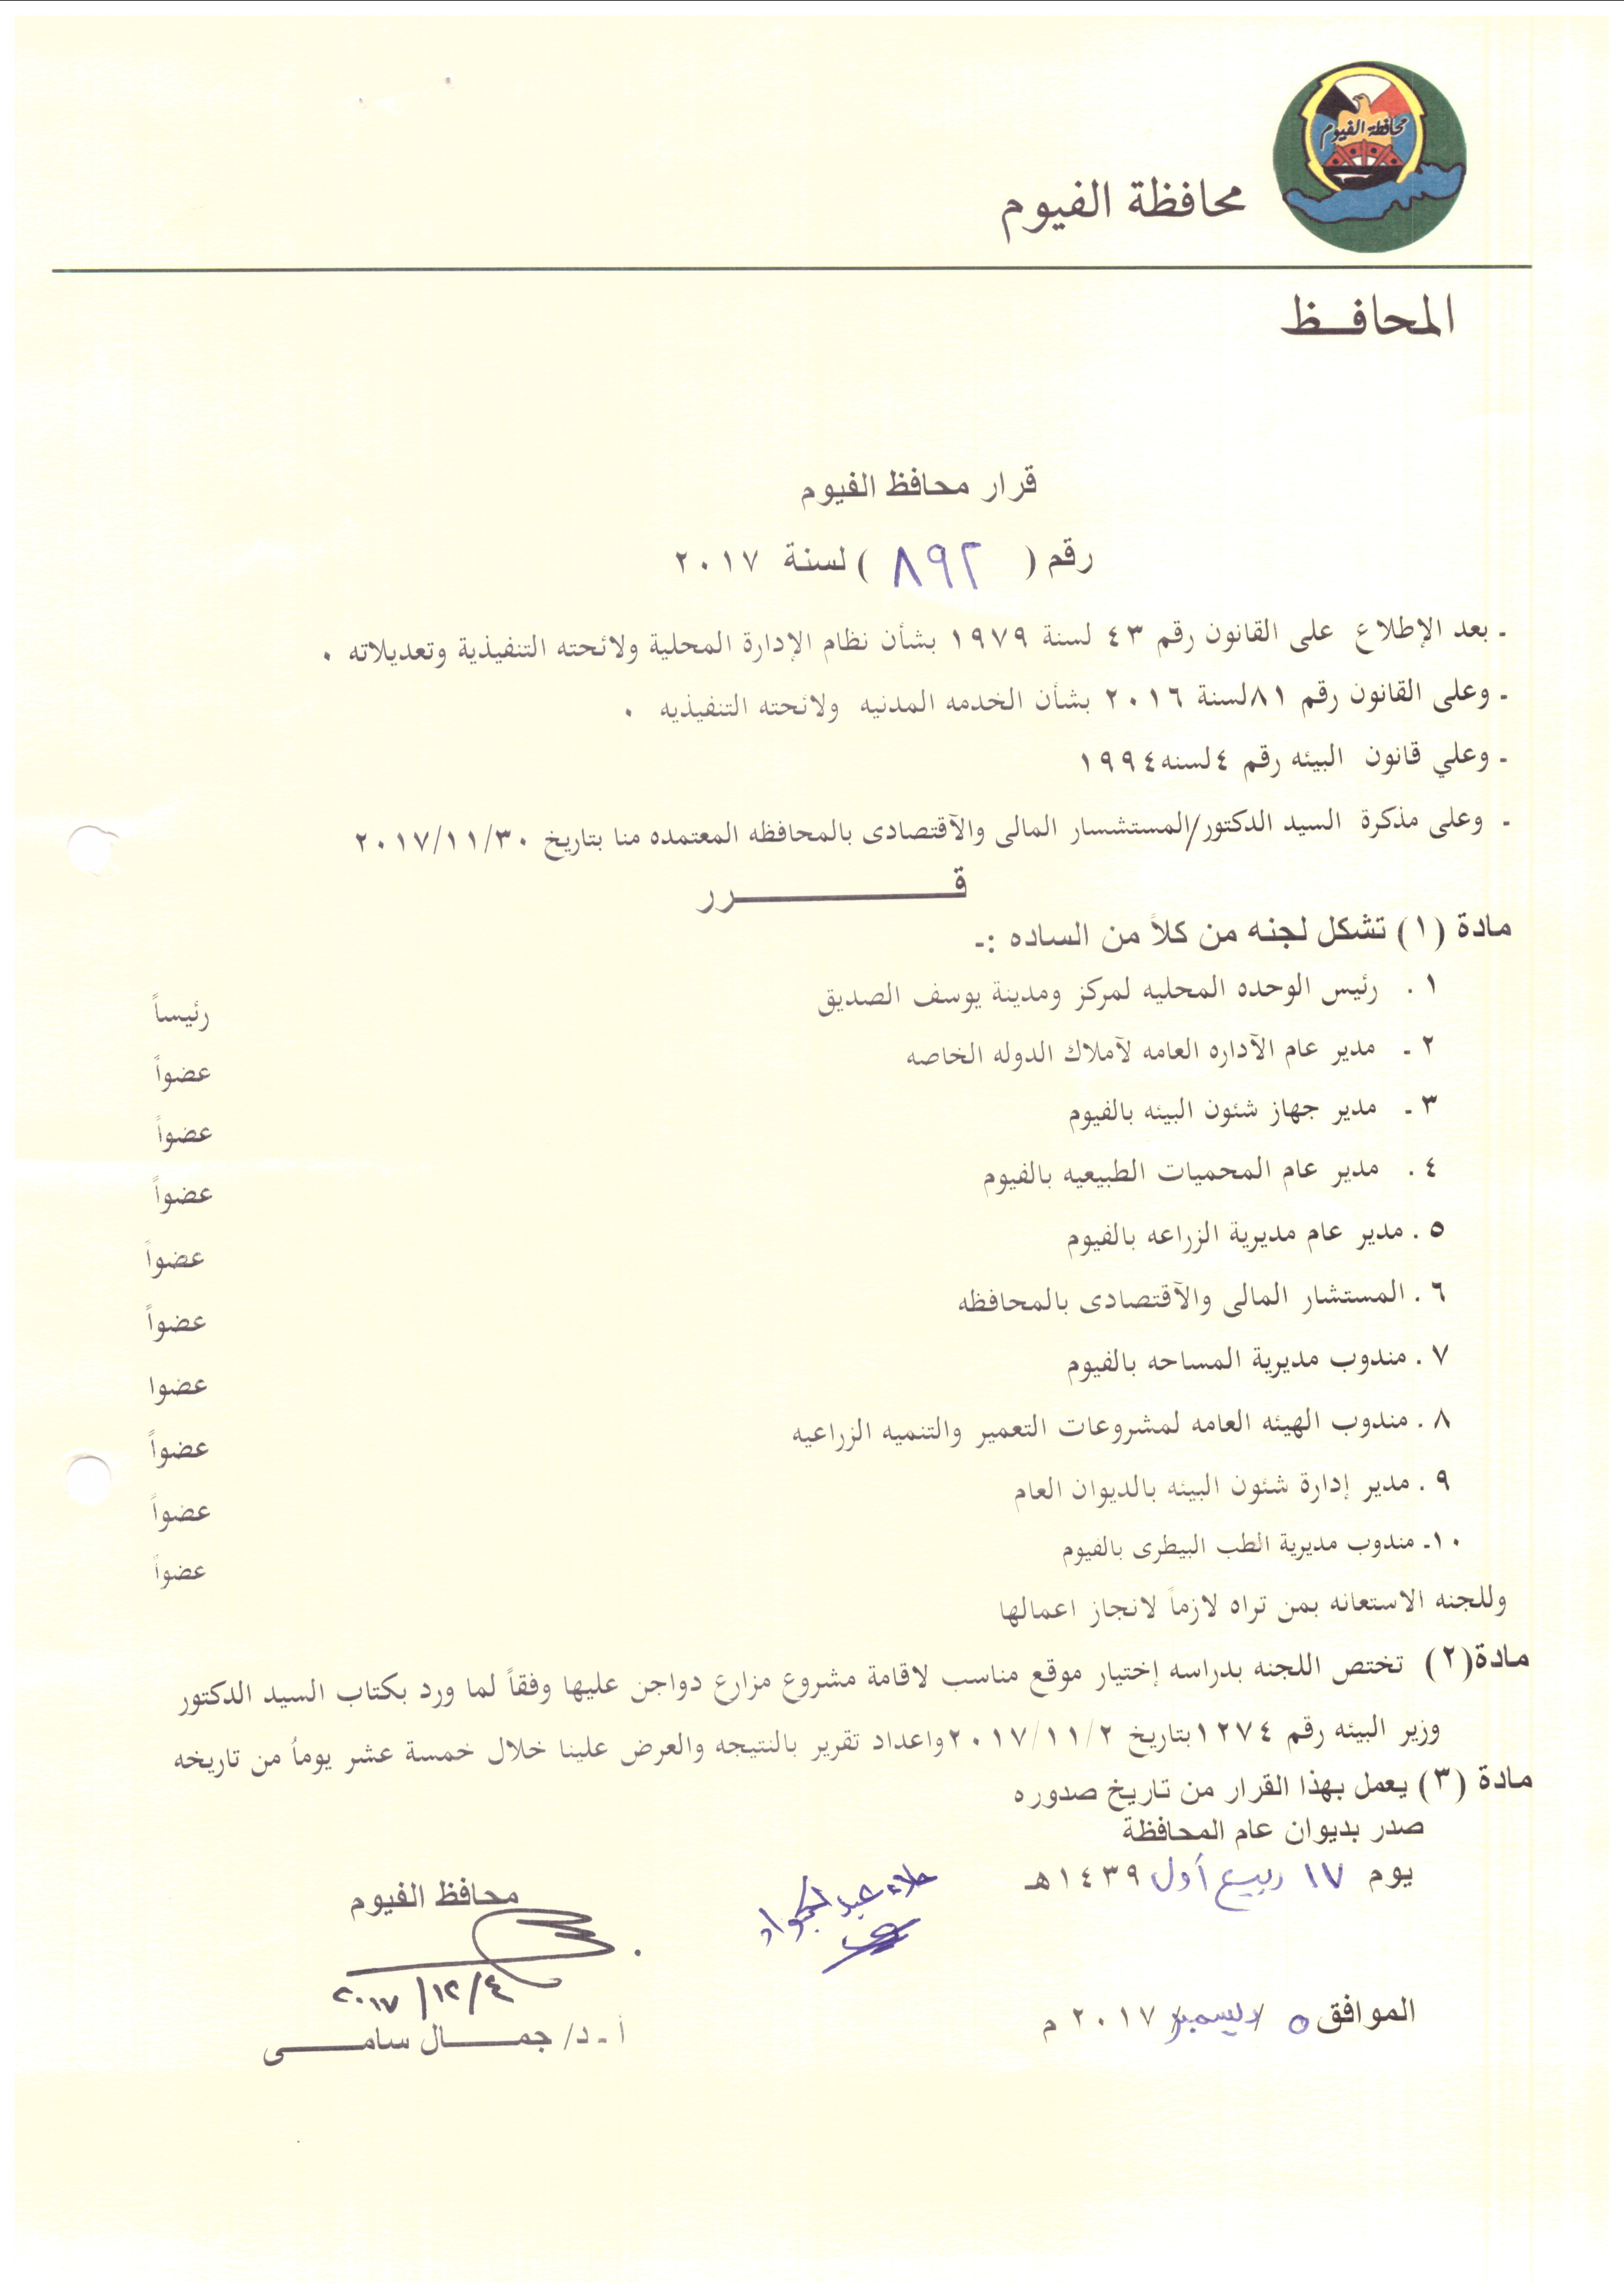 محافظة الفيوم
محافظة الفيوم
المحافـــظ
قرار محافظ الفيوم
رقم ( ٨٩٢ ) لسنة ٢٠١٧
ـ بعد الإطلاع على القانون رقم ٤٣ لسنة ١٩٧٩ بشأن نظام الإدارة المحلية ولائحته التنفيذية وتعديلاته ٠
ـ وعلى القانون رقم ٨١لسنة ٢٠١٦ بشأن الخدمه المدنيه ولائحته التنفيذيه ٠
ـ وعلي قانون البيئه رقم ٤لسنه١٩٩٤
ـ وعلى مذكرة السيد الدكتور/المستشسار المالى والآقتصادى بالمحافظه المعتمده منا بتاريخ ٢٠١٧/١١/٣٠
قـــــــــــرر
مادة (١) تشكل لجنه من كلاً من الساده :ـ
١ . رئيس الوحده المحليه لمركز ومدينة يوسف الصديق رئيساً
٢ ـ مدير عام الآداره العامه لآملاك الدوله الخاصه عضواً
٣ ـ مدير جهاز شئون البيئه بالفيوم عضواً
٤ . مدير عام المحميات الطبيعيه بالفيوم عضواً
٥ . مدير عام مديرية الزراعه بالفيوم عضواً
٦ . المستشار المالى والآقتصادى بالمحافظه عضواً
٧ . مندوب مديرية المساحه بالفيوم عضوا
٨ . مندوب الهيئه العامه لمشروعات التعمير والتنميه الزراعيه عضواً
٩ . مدير إدارة شئون البيئه بالديوان العام عضواً
١٠ـ مندوب مديرية الطب البيطرى بالفيوم عضواً
وللجنه الاستعانه بمن تراه لازماً لانجاز اعمالها
مادة(٢) تختص اللجنه بدراسه إختيار موقع مناسب لاقامة مشروع مزارع دواجن عليها وفقاً لما ورد بكتاب السيد الدكتور
وزير البيئه رقم ١٢٧٤بتاريخ ٢٠١٧/١١/٢واعداد تقرير بالنتيجه والعرض علينا خلال خمسة عشر يوماً من تاريخه
مادة (٣) يعمل بهذا القرار من تاريخ صدوره
صدر بديوان عام المحافظة
يوم ١٧ ربيع أول ١٤٣٩هـ
محافظ الفيوم
علاء عبد الجواد
٢٠١٧/١٢/٤
الموافق ٥ / ديسمبر/ ٢٠١٧ م
أ ـ د/ جمـــال سامـــى